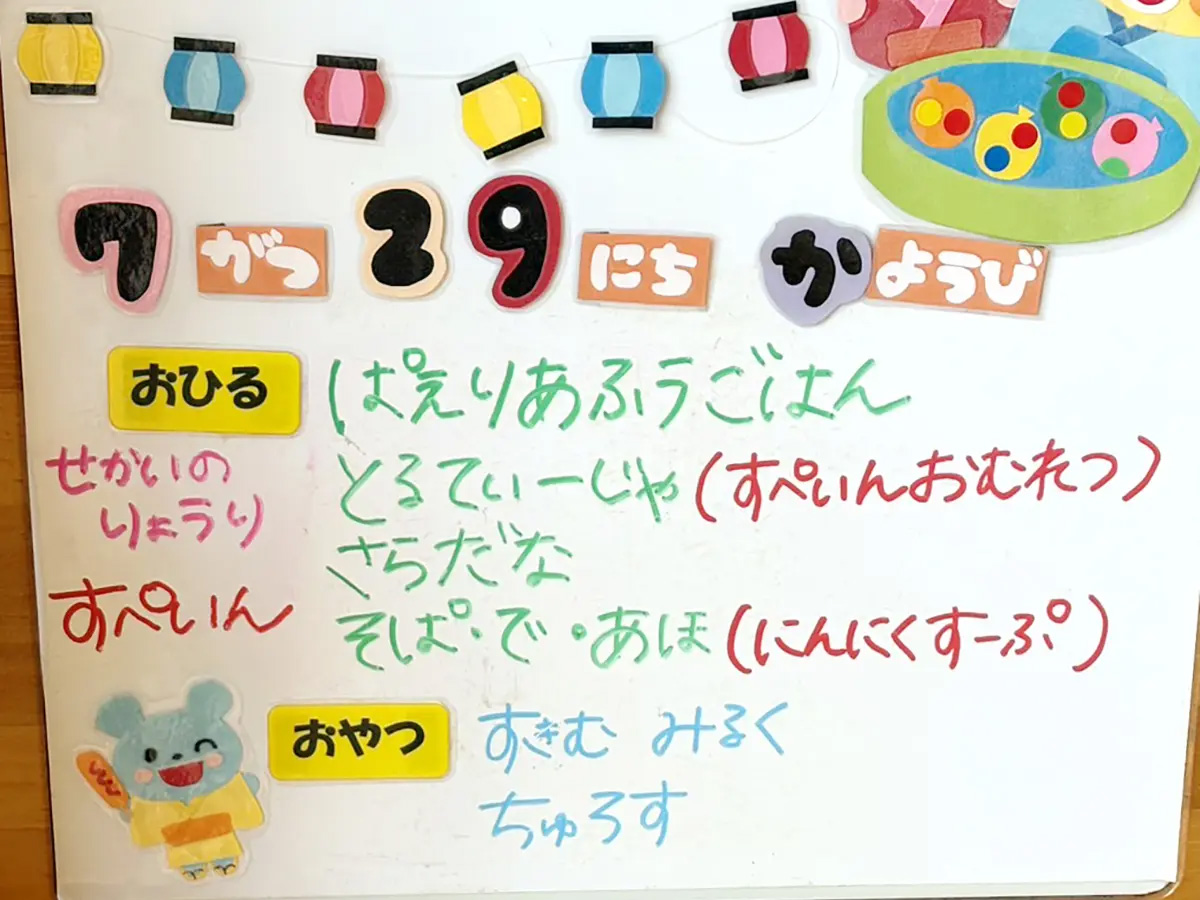 7 がつ 29 にち か ようび
おひる ぱえりあふうごはん
せかいの
りょうり
とるてぃーじゃ(すぺいんおむれつ)
さらだな
すぺいん
そぱ・で・あほ(にんにくすーぷ)
おやつ すきむ みるく
ちゅろす